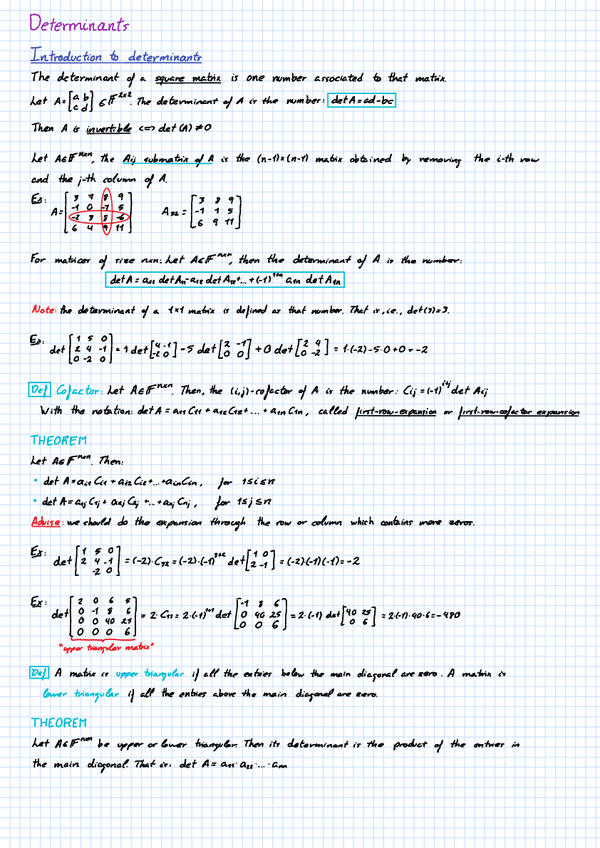 Determinants
Introduction to determinants
The determinant of a square matrix is one number associated to that matrix.
Let A=[a b; c d] ∈ F²ˣ². The determinant of A is the number: det A = ad-bc
Then A is invertible <=> det(A) ≠ 0
Let A∈Fⁿˣⁿ, the Aij submatrix of A is the (n-1)×(n-1) matrix obtained by removing the i-th row
and the j-th column of A.
Ex:
A = [3 7 8 9; -1 0 -7 5; -2 3 8 -6; 6 4 9 11] A₃₂ = [3 8 9; -1 1 5; 6 9 11]
For matrices of size nxn: Let A∈Fⁿˣⁿ, then the determinant of A is the number:
det A = a₁₁ det A₁₁ - a₁₂ det A₁₂ + ... + (-1)¹⁺ⁿ a₁ₙ det A₁ₙ
Note: the determinant of a 1x1 matrix is defined as that number. That is, i.e., det(3)=3.
Ex: det [1 5 0; 2 4 -1; 0 -2 0] = 1 det [4 -1; -2 0] - 5 det [2 -1; 0 0] + 0 det [2 4; 0 -2] = 1·(-2) - 5·0 + 0 = -2
Def Cofactor: Let A∈Fⁿˣⁿ. Then, the (i,j)-cofactor of A is the number: Cij = (-1)ⁱ⁺ʲ det Aij
With the notation: det A = a₁₁ C₁₁ + a₁₂ C₁₂ + ... + a₁ₙ C₁ₙ, called first-row-expansion or first-row-cofactor expansion
THEOREM
Let A∈Fⁿˣⁿ. Then:
• det A = ai₁ Ci₁ + ai₂ Ci₂ + ... + ain Cin, for 1≤i≤n
• det A = a₁j C₁j + a₂j C₂j + ... + anj Cnj, for 1≤j≤n
Advise: we should do the expansion through the row or column which contains more zeros.
Ex: det [1 5 0; 2 4 -1; -2 0] = (-2)·C₃₂ = (-2)·(-1)³⁺² det [1 0; 2 -1] = (-2)·(-1)(-1) = -2
Ex: det [2 0 6 5; 0 -1 8 6; 0 0 40 25; 0 0 0 6] = 2·C₁₁ = 2·(-1)¹⁺¹ det [-1 8 6; 0 40 25; 0 0 6] = 2·(-1) det [40 25; 0 6] = 2·(-1)·40·6 = -480
"upper triangular matrix"
Def A matrix is upper triangular if all the entries below the main diagonal are zero. A matrix is
lower triangular if all the entries above the main diagonal are zero.
THEOREM
Let A∈Fⁿˣⁿ be upper or lower triangular. Then its determinant is the product of the entries in
the main diagonal. That is: det A = a₁₁·a₂₂·...·aₙₙ